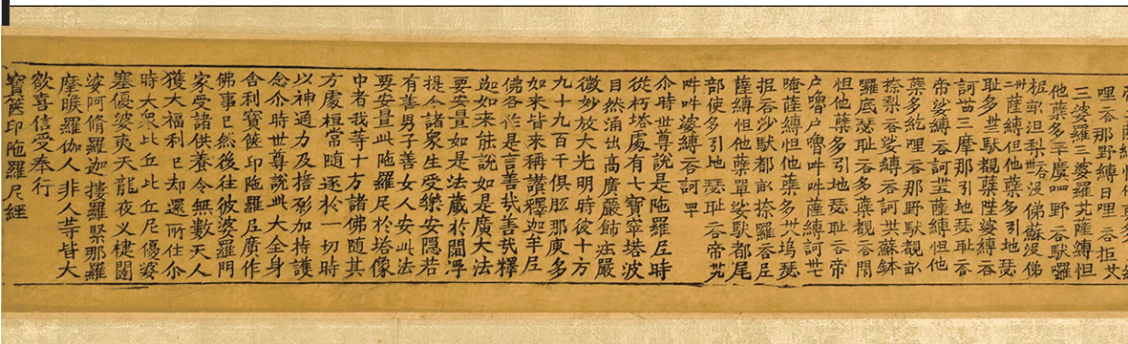 哩二合那野縛日哩二合抳
三婆羅三婆羅薩縛怛
他蘗多野二合馱囉
薩縛怛他蘗多引地瑟
耻多馱覩蘗陛娑縛二合
訶三摩那引地瑟耻二合
帝娑縛二合訶薩縛怛他
蘗多紇哩二合那野馱覩
捺梨二合娑縛二合訶蘇鉢
囉底瑟耻二合多薩
怛他蘗多引地瑟耻二合帝
戶嚕戶嚕吽吽薩縛訶
唵薩縛怛他蘗多塢瑟
抳沙馱都捺羅二合尼
薩縛怛他蘗單娑馱都尾
部使多引地瑟耻二合帝
吽吽娑縛二合訶
尒時世尊說是陁羅尼時
從朽塔處有七寶窣塔波
自然涌出高廣嚴飾莊嚴
微妙放大光明時彼十方
九十九百千俱胝那庾多
如來皆來稱讚釋迦牟尼
佛各作是言善哉善哉釋
迦如來能說如是廣大法
要安置如是法藏於閻浮
提令諸衆生受樂安隱若
有善男子善女人安此法
要安置此陁羅尼於塔像
中者我等十方諸佛隨其
方處恒當隨逐於一切時
以神通力及誓願加持護
念尒時世尊說此大全身
舍利寶篋印陁羅尼廣作
佛事已然後往彼婆羅門
家受諸供養令無數天人
獲大福利已却還所住尒
時大衆比丘比丘尼優婆
塞優婆夷天龍夜叉犍闥
婆阿脩羅迦樓羅緊那羅
摩睺羅伽人非人等皆大
歡喜信受奉行
寶篋印陁羅尼經